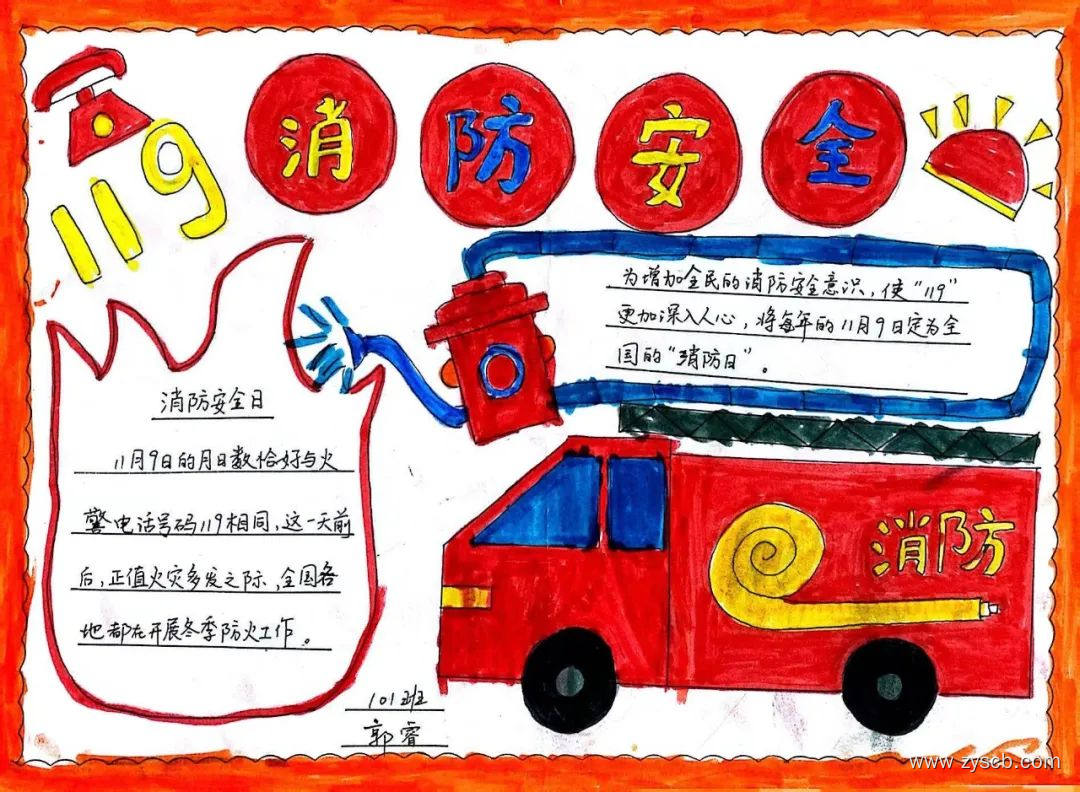 119
消防安全
为增加全民的消防安全意识，使“119”
更加深入人心，将每年的11月9日定为全
国的“消防日”。
消防安全日
11月9日的月日数恰好与火
警电话号码119相同，这一天前
后，正值火灾多发之际，全国各
地都在开展冬季防火工作。
消防
101班
郭睿
www.zyscb.com